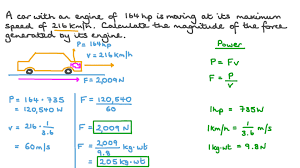 A car with an engine of 164 hp is moving at its maximum
speed of 216 km/h. Calculate the magnitude of the force
generated by its engine.
P = 164hp
v = 216 km/h
F = 2,009 N
P = 164 · 735
= 120,540 W
v = 216 · 1/3.6
= 60 m/s
F = 120,540/60
F = 2,009 N
F = 2009/9.8 kg·wt
= 205 kg·wt
Power
P = Fv
F = P/v
1hp = 735W
1km/h = 1/3.6 m/s
1kg·wt = 9.8N